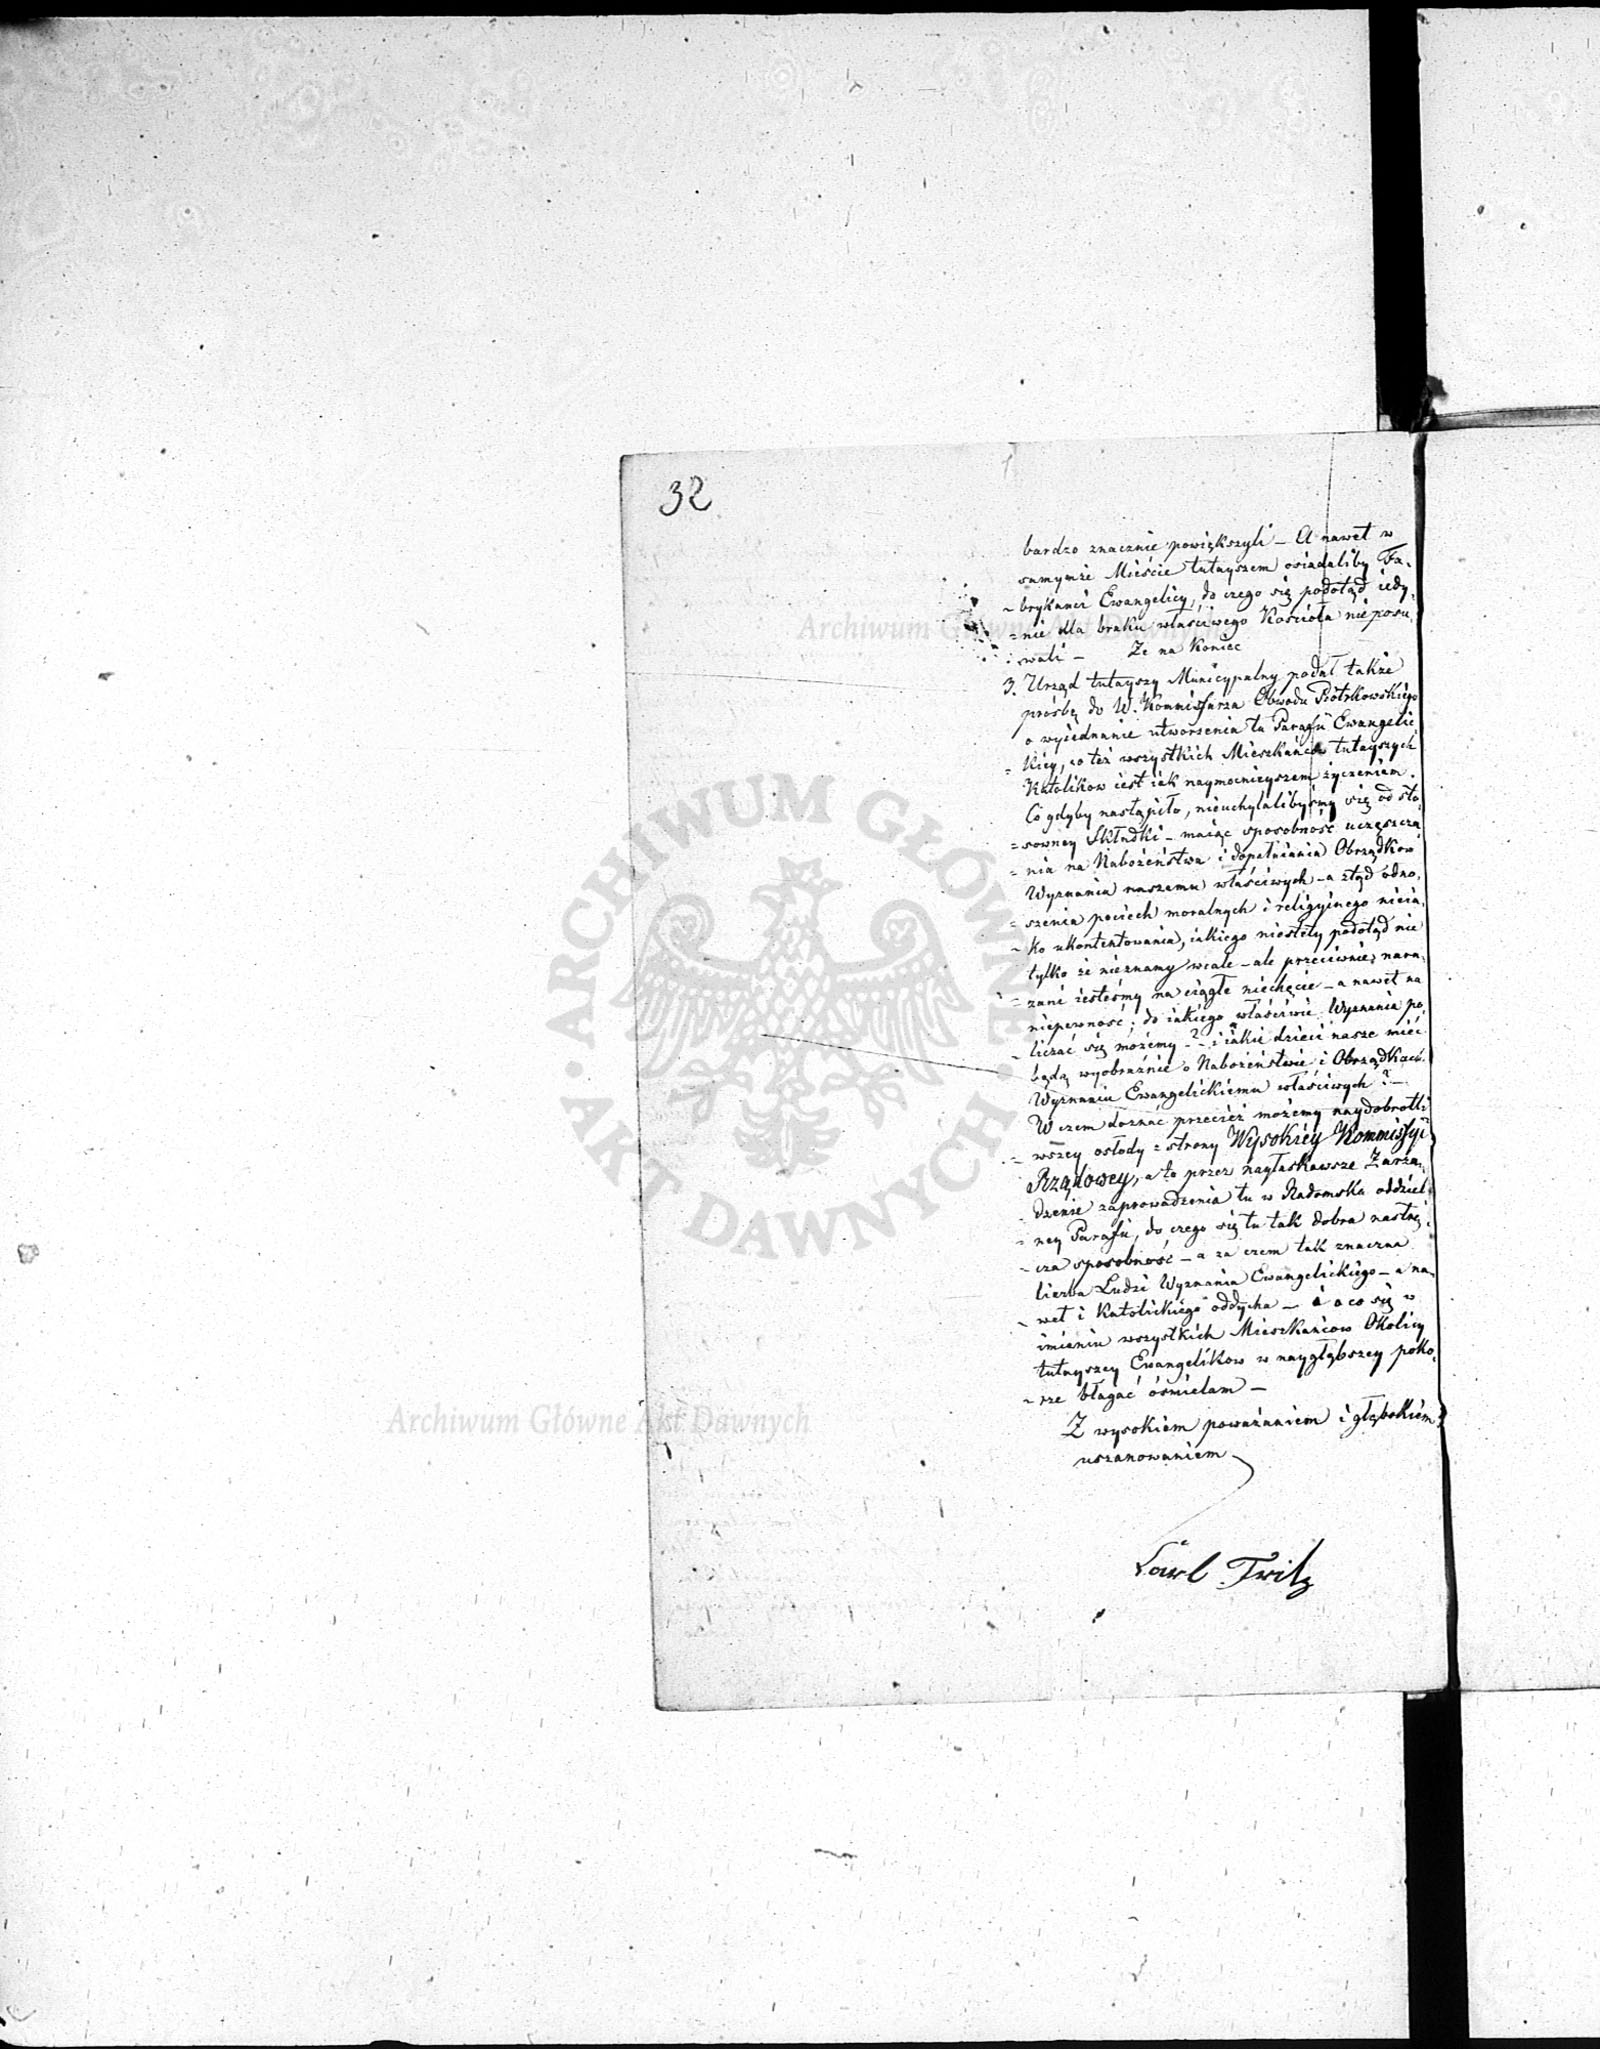 32
bardzo znacznie powiększyli – A nawet w
samymże Mieście tutayszem osiadaliby Fa-
brykanci Ewangelicy, do czego się podotąd iedy-
=nie dla braku właściwego Kościoła nieposu-
wali – Ze na koniec
3. Urząd tutayszy Municypalny podał także
prośbę do W. Kommissarza Obwodu Piotrkowskiego
o wyiednanie utworzenia tu Parafii Ewangelic-
=kiey, co też wszystkich Mieszkańców tutayszych
Katolikow iest iak naymocnieyszem życzeniem.
Co gdyby nastąpiło, nieuchylalibyśmy się od sto-
=sowney Składki – maiąc sposobność uczęszcza
=nia na Nabożeństwa i dopełniania Obrządków
Wyznania naszemu właściwych – a ztąd odno-
=szenia pociech moralnych i religyinego nieia-
-ko ukontentowania, iakiego niestety podotąd nie
tylko że nieznamy wcale – ale przeciwnie nara-
=zani iesteśmy na ciągłe niechęcie – a nawet na
niepewność; do iakiego właściwie Wyznania po-
-liczać się możemy – ? – i iakie dzieci nasze mieć
będą wyobraźnie o Nabożeństwie i Obrządkach
Wyznaniu Ewangelickiemu właściwych ? –
W czem doznać przecież możemy naydobrotli
=wszey osłody z strony Wysokiey Kommissyi
Rządowey, a to przez nayłaskawsze Zarzą-
-dzenie zaprowadzenia tu w Radomsku oddziel-
=ney Parafii, do czego się tu tak dobra nastrę-
-cza sposobność – a za czem tak znaczna
liczba Ludzi Wyznania Ewangelickiego – a na-
-wet i Katolickiego oddycha – i o co się w
imieniu wszystkich Mieszkańcow Okolicy
tutayszey Ewangelikow w naygłębszey poko-
-rze błagać ośmielam –
Z wysokiem poważaniem i głębokiem
uszanowaniem
Carl Fritz
Archiwum Główne Akt Dawnych
ARCHIWUM GŁÓWNE · AKT DAWNYCH ·
Archiwum Główne Akt Dawnych